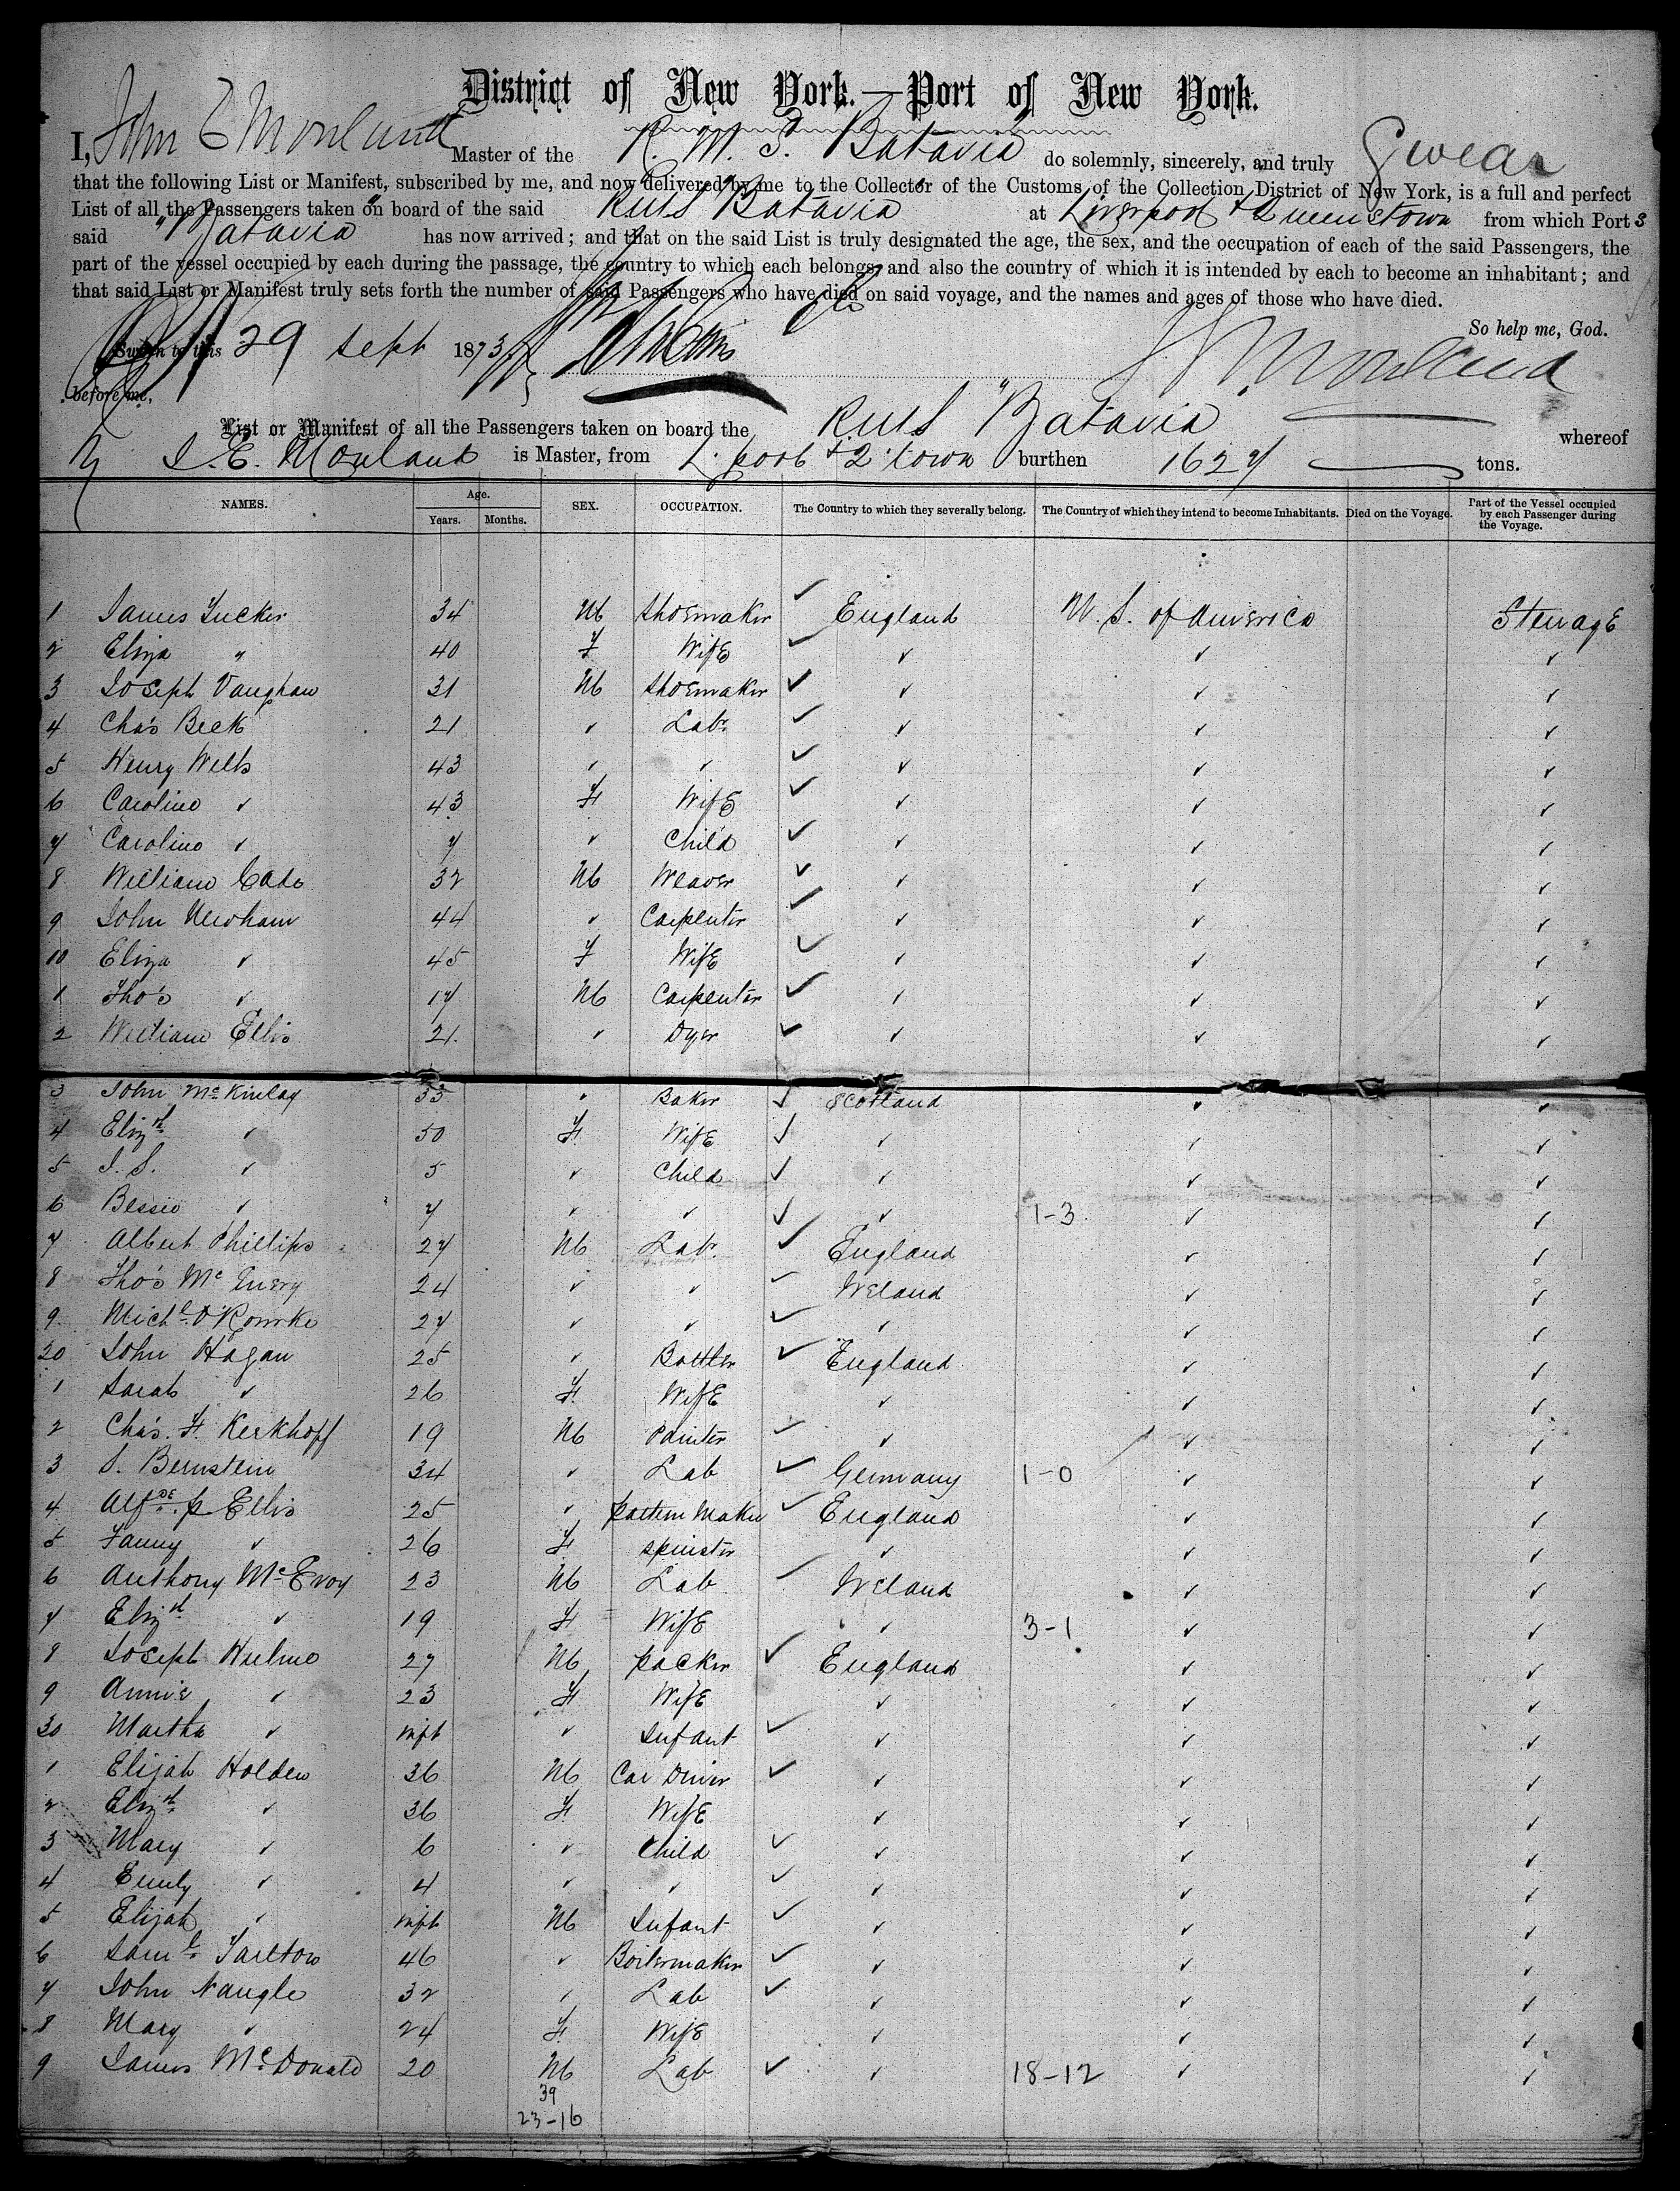 District of New York.—Port of New York.
I, John E Mouland Master of the R. M. S. Batavia do solemnly, sincerely, and truly Swear
that the following List or Manifest, subscribed by me, and now delivered by me to the Collector of the Customs of the Collection District of New York, is a full and perfect
List of all the Passengers taken on board of the said RMS Batavia at Liverpool & Queenstown from which Ports
said "Batavia" has now arrived; and that on the said List is truly designated the age, the sex, and the occupation of each of the said Passengers, the
part of the vessel occupied by each during the passage, the country to which each belongs, and also the country of which it is intended by each to become an inhabitant; and
that said List or Manifest truly sets forth the number of said Passengers who have died on said voyage, and the names and ages of those who have died.
So help me, God.
Sworn to this 29 Sept 1873
Mouland
before me,
List or Manifest of all the Passengers taken on board the RMS "Batavia" whereof
J. E. Mouland is Master, from L'pool & Q'town burthen 1627 tons.
NAMES. Age. Years. Months. SEX. OCCUPATION. The Country to which they severally belong. The Country of which they intend to become Inhabitants. Died on the Voyage. Part of the Vessel occupied by each Passenger during the Voyage.
1 James Tucker 34 M Shoemaker ✓ England U. S. of America Steerage
2 Eliza " 40 F Wife ✓ ✓ ✓ ✓
3 Joseph Vaughan 31 M Shoemaker ✓ ✓ ✓ ✓
4 Cha's Beek 21 ✓ Labr ✓ ✓ ✓ ✓
5 Henry Wells 43 ✓ ✓ ✓ ✓ ✓ ✓
6 Caroline ✓ 43 F Wife ✓ ✓ ✓ ✓
7 Caroline ✓ 7 ✓ Child ✓ ✓ ✓ ✓
8 William Cade 32 M Weaver ✓ ✓ ✓ ✓
9 John Newham 44 ✓ Carpenter ✓ ✓ ✓ ✓
10 Eliza ✓ 45 F Wife ✓ ✓ ✓ ✓
1 Tho's ✓ 17 M Carpenter ✓ ✓ ✓ ✓
2 William Ellis 21 ✓ Dyer ✓ ✓ ✓ ✓
3 John McKinlay 33 ✓ Baker ✓ Scotland ✓ ✓
4 Elizth ✓ 50 F Wife ✓ ✓ ✓ ✓
5 J. S. ✓ 5 ✓ Child ✓ ✓ ✓ ✓
6 Bessie ✓ 7 ✓ ✓ ✓ ✓ 1-3 ✓ ✓
7 Albert Phillips 27 M Labr ✓ England ✓ ✓
8 Tho's Mc Enery 24 ✓ ✓ ✓ Ireland ✓ ✓
9 Michl O'Rourke 27 ✓ ✓ ✓ ✓ ✓ ✓
20 John Hagan 25 ✓ Bottler ✓ England ✓ ✓
1 Sarah ✓ 26 F Wife ✓ ✓ ✓
2 Chas. F. Kerkhoff 19 M Painter ✓ ✓ ✓ ✓
3 S. Bernstein 34 ✓ Lab ✓ Germany 1-0 ✓ ✓
4 Alfde. p Ellis 25 ✓ pattern Maker ✓ England ✓ ✓
5 Fanny ✓ 26 F spinster ✓ ✓ ✓
6 Anthony McEvoy 23 M Lab ✓ Ireland ✓ ✓
7 Elizth ✓ 19 F Wife ✓ 3-1 ✓ ✓
8 Joseph Hulme 27 M packer ✓ England ✓ ✓
9 Annie ✓ 23 F Wife ✓ ✓ ✓
30 Martha ✓ inft ✓ Infant ✓ ✓ ✓ ✓
1 Elijah Holden 36 M Car Driver ✓ ✓ ✓ ✓
2 Elizth ✓ 36 F Wife ✓ ✓ ✓
3 Mary ✓ 6 ✓ Child ✓ ✓ ✓ ✓
4 Emily ✓ 4 ✓ ✓ ✓ ✓ ✓ ✓
5 Elijah ✓ inft M Infant ✓ ✓ ✓ ✓
6 Saml Tarlton 46 ✓ Boilermaker ✓ ✓ ✓ ✓
7 John Naugle 32 ✓ Lab ✓ ✓ ✓ ✓
8 Mary ✓ 24 F Wife ✓ ✓ ✓
9 James McDonald 20 M Lab ✓ ✓ 18-12 ✓ ✓
39
23-16